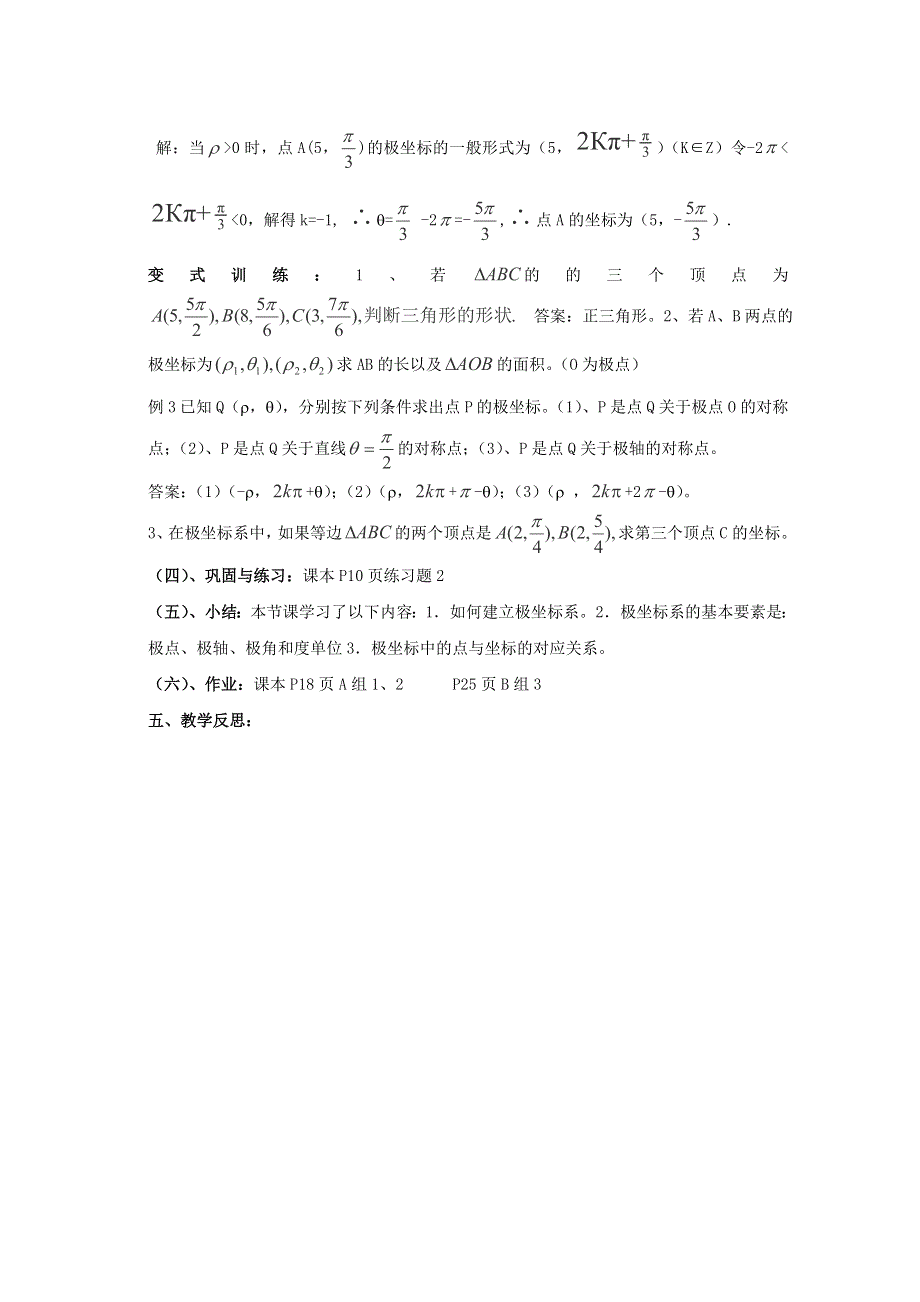 解：当ρ>0时，点A(5，π/3)的极坐标的一般形式为（5，2Kπ+π/3）（K∈Z）令-2π<
2Kπ+π/3<0，解得k=-1，∴θ=π/3 -2π=-5π/3，∴点A的坐标为（5，-5π/3）.
变式训练：1、若ΔABC的的三个顶点为
A(5,5π/2),B(8,5π/6),C(3,7π/6),判断三角形的形状. 答案：正三角形。2、若A、B两点的
极坐标为(ρ₁,θ₁),(ρ₂,θ₂)求AB的长以及ΔAOB的面积。（O为极点）
例3已知Q（ρ，θ），分别按下列条件求出点P的极坐标。（1）、P是点Q关于极点O的对称
点；（2）、P是点Q关于直线θ=π/2的对称点；（3）、P是点Q关于极轴的对称点。
答案：（1）（-ρ，2kπ+θ）；（2）（ρ，2kπ+π-θ）；（3）（ρ ，2kπ+2π-θ）。
3、在极坐标系中，如果等边ΔABC的两个顶点是A(2,π/4),B(2,5/4),求第三个顶点C的坐标。
（四）、巩固与练习：课本P10页练习题2
（五）、小结：本节课学习了以下内容：1．如何建立极坐标系。2．极坐标系的基本要素是：
极点、极轴、极角和度单位3．极坐标中的点与坐标的对应关系。
（六）、作业：课本P18页A组1、2 P25页B组3
五、教学反思：